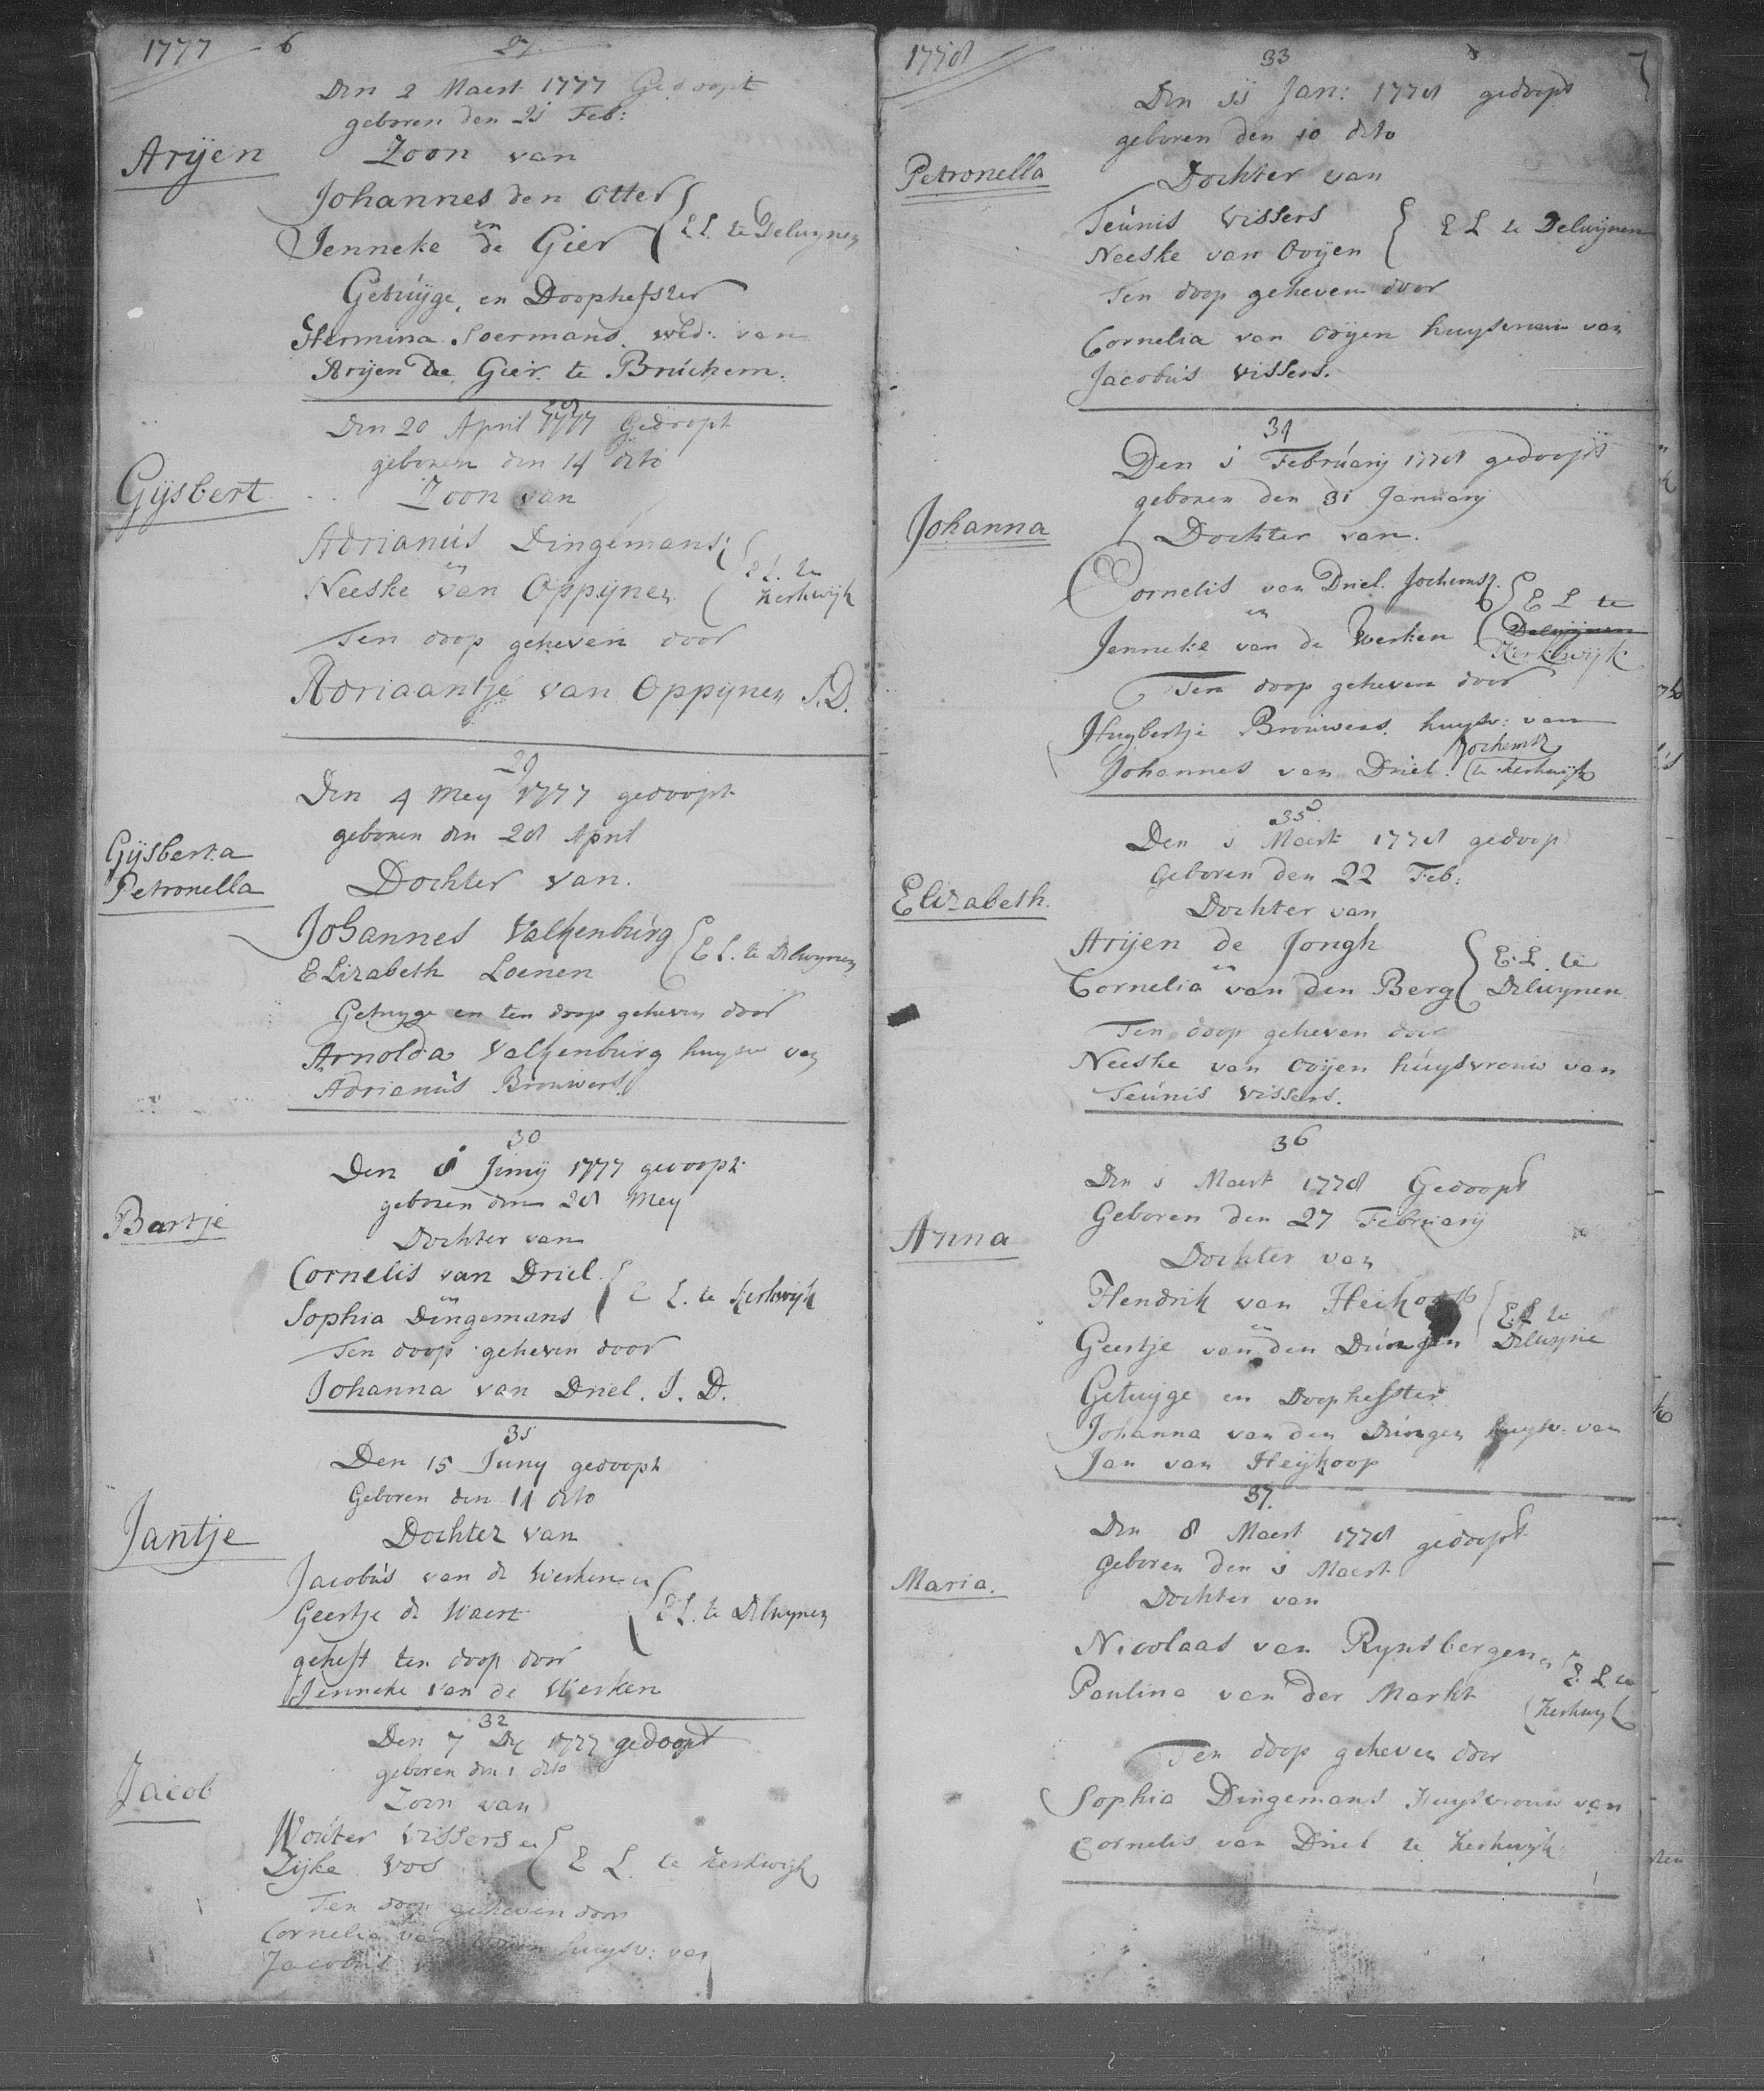 1777 6 27.
Den 2 Maert 1777 Gedoopt
geboren den 21 Feb:
Arijen Zoon van
Johannes den Otter
en
Jenneke de Gier E L. te Delwynen
Getuÿge, en Doophefster
Hermina Soermans. wed: van
Arijen de Gier te Brúchem.
28
Den 20 April 1777 Gedoopt
geboren den 14 dito
Gijsbert Zoon van
Adrianús Dingemans
en E L. te
Neeske van Oppijnen Kerkwijk
Ten doop geheven door
Adriaantje van Oppijnen J.D.
29
Den 4 Meij 1777 gedoopt
geboren den 28 April
Gijsberta
Petronella Dochter van.
Johannes Valkenbúrg
Elizabeth Loenen E L. te Delwynen
Getuyge en ten doop geheven door
Arnolda Valkenbúrg huysv van
Adrianús Brouwers
30
Den 8 Junij 1777 gedoopt
geboren den 28 Mey
Bartje Dochter van
Cornelis van Driel
en E L. te Kerkwijk
Sophia Dingemans
Ten doop geheven door
Johanna van Driel. J. D.
31
Den 15 Juny gedoopt
Geboren den 11 dito
Jantje Dochter van
Jacobús van de Werken en
Geertje de Waert E L. te Delwynen
geheft ten doop door
Jenneke van de Werken
32
Den 7 Dec 1777 gedoopt
geboren den 1 dito
Jacob Zoon van
Woúter Vissers en
Zijke Vos E L. te Kerkwijk
Ten doop geheven door
Cornelia van huysv: van
Jacobus
1778 33 7
Den 11 Jan: 1778 gedoopt
geboren den 10 dito
Petronella Dochter van
Teúnis Vissers
E L te Delwijnen
Neeske van Ooijen
Ten doop geheven door
Cornelia van Ooijen huysvrouw van
Jacobús Vissers.
34
Den 1 Febrúarij 1778 gedoopt
geboren den 31 Januarij
Johanna Dochter van.
Cornelis van Driel Jochemsz.
en E L te
Jenneke van de Werken Delwijnen
Kerkwijk
Ten doop geheven door
Huybertje Brouwers. huysv: van
Jochemsz
Johannes van Driel. te Kerkwijk
35
Den 1 Maert 1778 gedoop
Geboren den 22 Feb:
Elizabeth. Dochter van
Arijen de Jongh
en E L. te
Cornelia van den Berg Delwynen
Ten doop geheven door
Neeske van Ooijen húysvrouw van
Teúnis Vissers.
36
Den 1 Maert 1778 Gedoopt
Geboren den 27 Februarij
Anna Dochter van
Hendrik van Heikoop
en E L te
Geertje van den Dúngen Delwyne
Getuijge en Doophefster
Johanna van den Dúngen huysv. van
Jan van Heijkoop
37.
Den 8 Maert 1778 gedoopt
geboren den 1 Maert
Maria. Dochter van
Nicolaas van Rynsbergen en
E. L te
Paulina van der Markt Kerkwyk
Ten doop geheven door
Sophia Dingemans Huysvrouw van
Cornelis van Driel te Kerkwijk